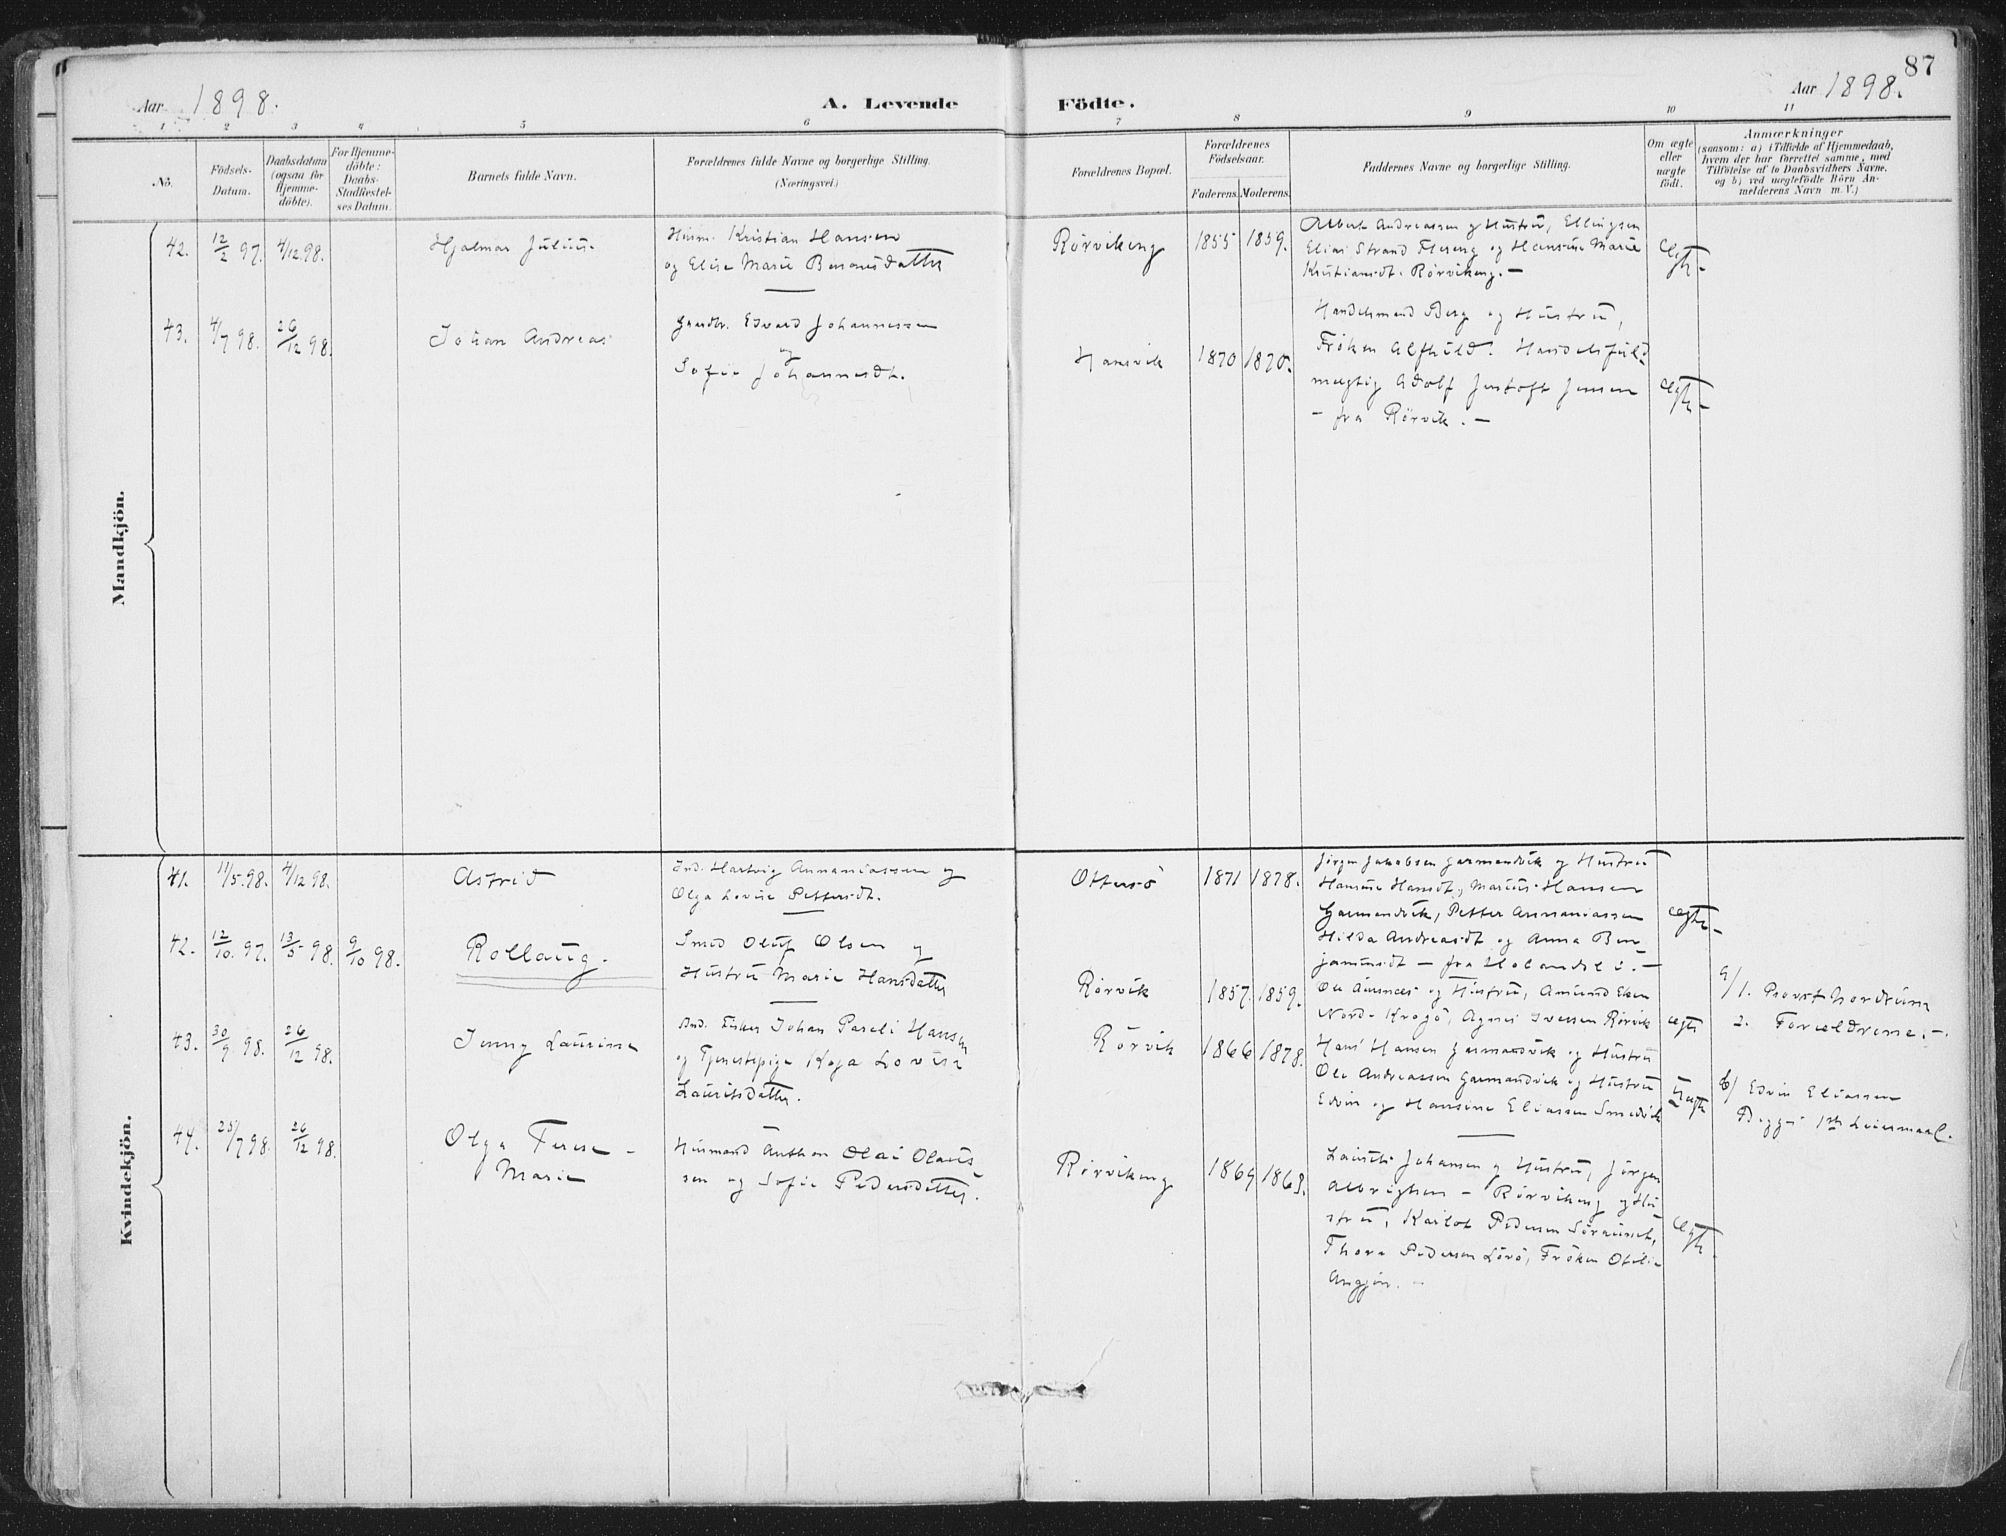 87
Aar 1898.
A. Levende Födte.
Aar 1898.
1 2 3 4 5 6 7 8 9 10 11
No.
Födsels-
Datum.
Daabsdatum
(ogsaa for
Hjemme-
döbte).
For Hjemme-
döbte:
Daabs-
Stadfæstel-
ses Datum.
Barnets fulde Navn.
Forældrenes fulde Navne og borgerlige Stilling.
(Næringsvei.)
Forældrenes Bopæl.
Forældrenes
Födselsaar.
Faderens. Moderens.
Faddernes Navne og borgerlige Stilling.
Om ægte
eller
uægte
født.
Anmærkninger
(saasom: a) i Tilfælde af Hjemmedaab,
hvem der har forrettet samme, med
Tilföielse af to Daabsvidners Navne,
og b) ved uægtefödte Börn An-
melderens Navn m. V.)
Mandkjön.
42. 12/2 97. 4/12 98. Hjalmar Julius.
Kristian Hansen
og Elise Marie
Rørvikeng 1855 1859.
Albert Andreassen og Hustru, Ellingsen
Elias Strand Flereng og Hansine Marie
Kristiansdt. Rørvikeng. —
Ægte —
43. 4/7 98. 26/12 98. Johan Andreas
Gaardbr. Edvard Johannessen
og
Sofie Johannesdt.
Hansvik 1870 1870.
Handelsmand Berg og Hustru,
Frøken Alfhild. Handelsfuld-
mægtig Adolf Jensen
— fra Rørvik. —
Ægte —
Kvindekjön.
41. 11/5 98. 4/12 98. Astrid
Ind. Hartvig Annaniassen og
Olga Lovise Pettersdt.
Ottersø 1871 1878.
Jörgen Jakobsen Garmandvik og Hustru
Hansine Hansdt, Marius Hansen
Garmandvik, Petter Annaniassen
Hilda Andreasdt og Anna Ben-
jaminsdt — fra
Ægte —
42. 12/10. 97. 13/5 98. 9/10 98. Rollaug.
Smed Oluf Olsen og
Hustru Marie Hansdatter
Rørvik 1857. 1859.
Ole og Hustru, Amund
Nord-Krogø, Agnes Iversen Rørvik
Ægte
a/ 1. Provst
2. Forældrene. —
43. 30/9 98. 26/12 98. Jenny Laurine
Ind. Fisker Johan Pareli Hansen
og Tjenestepige Kaja Lovise
Lauritsdatter.
Rørvik 1866 1878.
Hans Hansen Garmandvik og Hustru
Ole Andreassen Garmandvik og Hustru
Edvin og Hansine Eliassen Smedvik
Uægte
b/ Edvin Eliassen
Begges 1ste Leiermaal.
44. 25/7 98. 26/12 98. Olga Terese
Marie
Husmand Anthon Olai Olaus-
sen og Sofie Pedersdatter.
Rørvikeng 1869 1863.
Laurits Johansen og Hustru, Jörgen
Albrigtsen — Rørvikeng og Hu-
stru, Karlot Pedersen
Thora Pedersen Lörö, Frøken Otelie
Ægte.